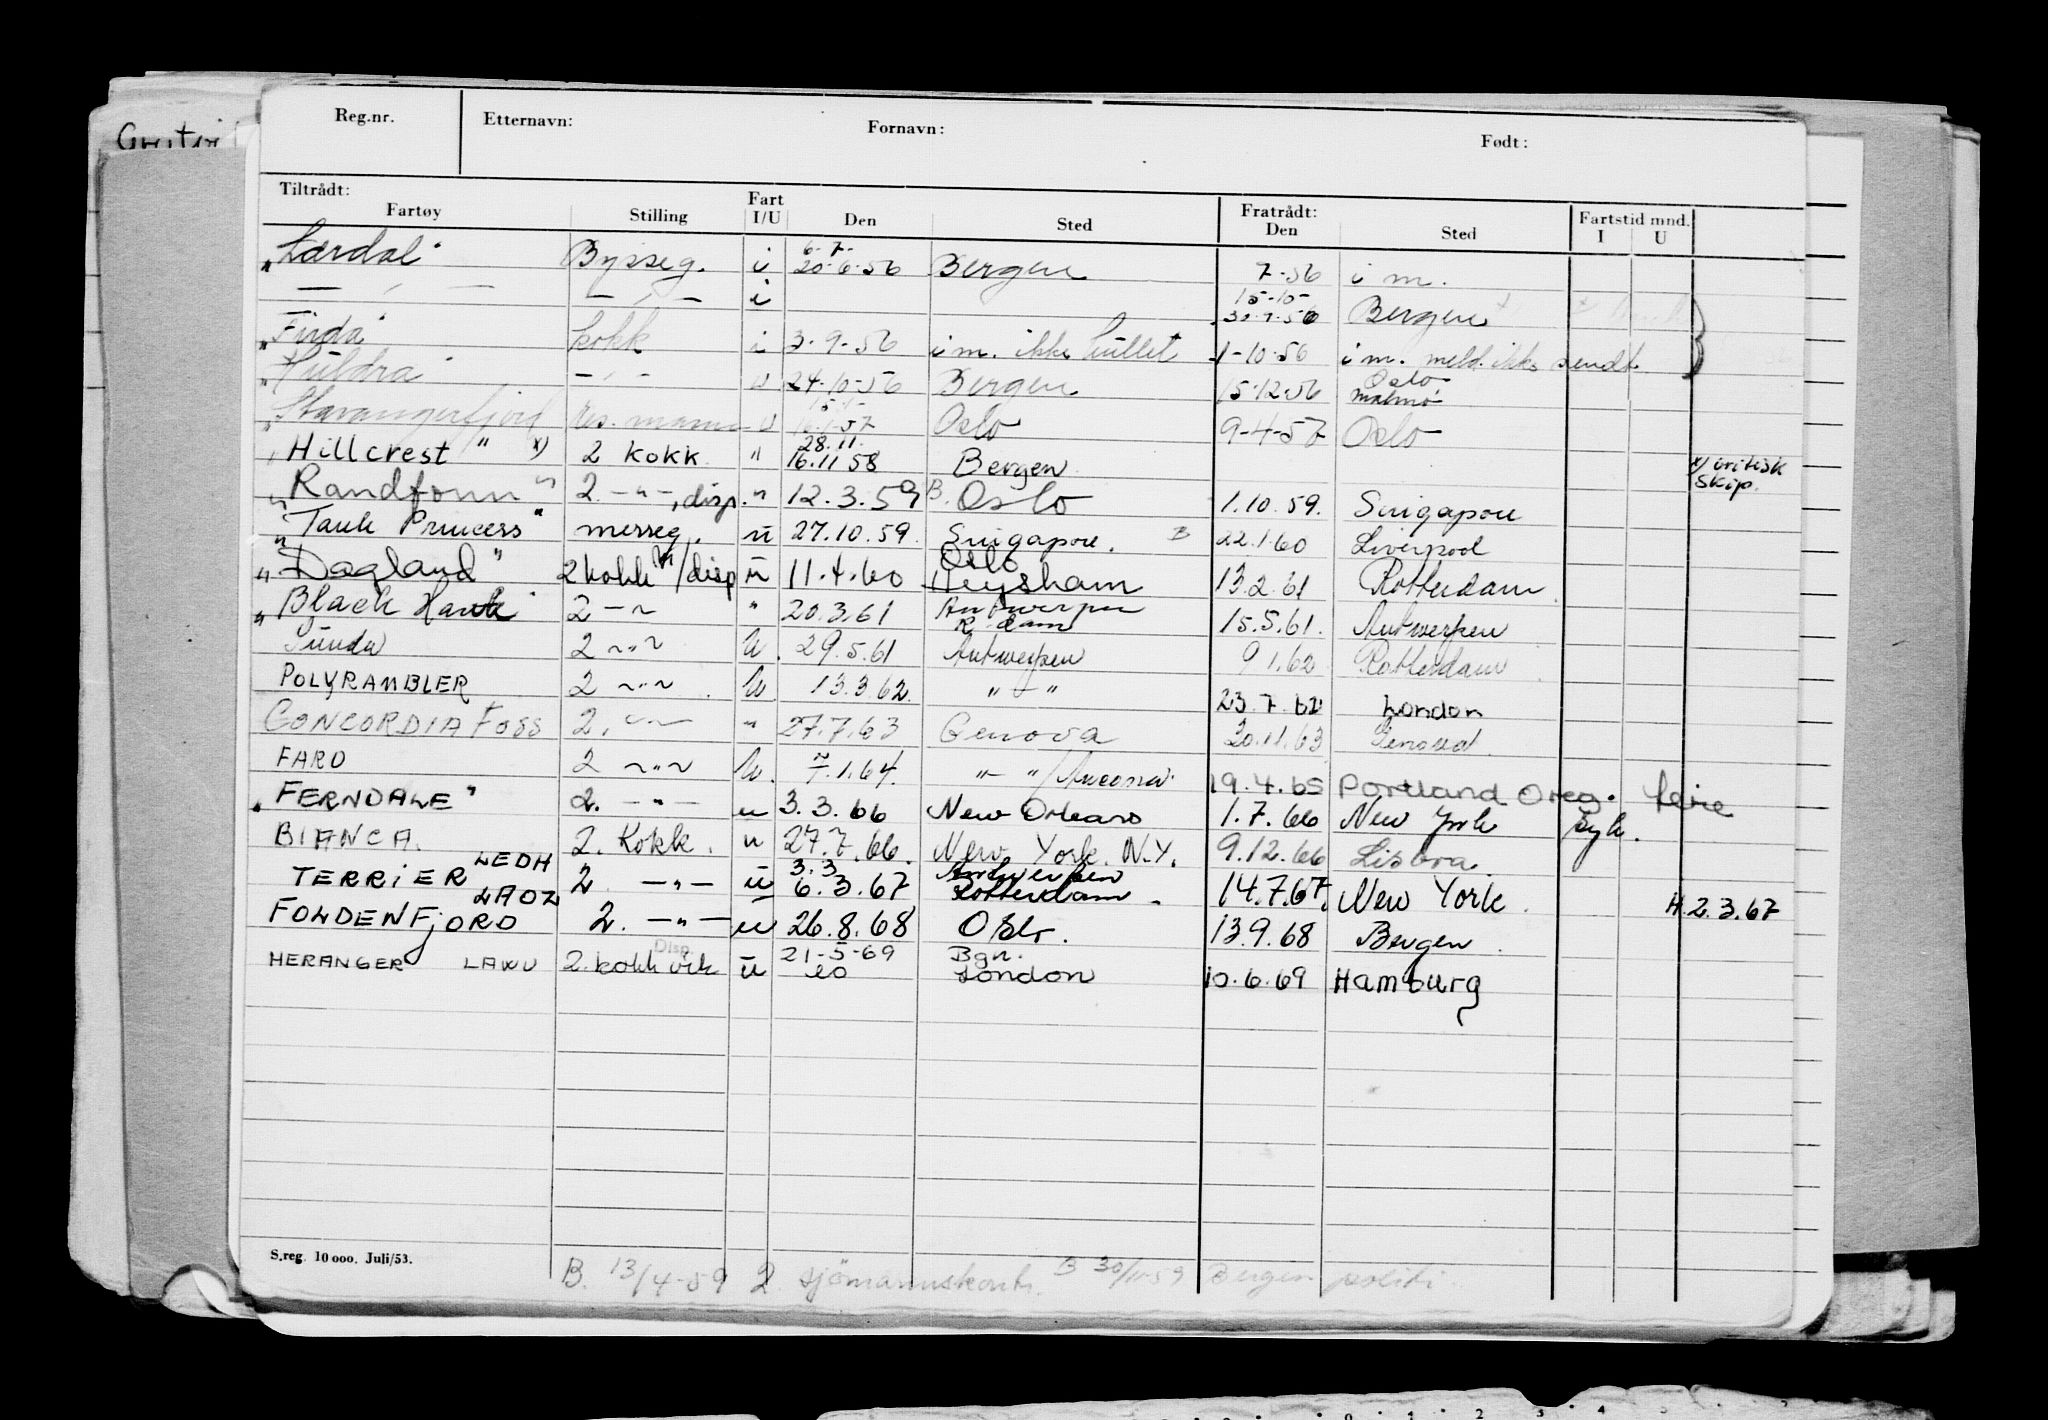 Reg.nr. Etternavn: Fornavn: Født:
Tiltrådt: Fartøy Stilling Fart I/U Den Sted Fratrådt: Den Sted Fartstid mnd. I U
"Lærdal" Bysseg. i 6-7- 20-6-56 Bergen 7-56 i m.
— " — — " — i 15-10- 30-7-56 Bergen
"Firda" kokk i 3-9-56 i m. ikke 1-10-56 i m. meld. ikke sendt.
"Huldra" — " — u 24-10-56 Bergen 15-12-56 Oslo Malmö
"Stavangerfjord" u 57 Oslo 9-4-57 Oslo
"Hillcrest" x) 2 kokk " 28.11. 16.11 58 Bergen x) britisk skip.
"Randfonn" 2. — " —, disp. " 12.3.59 B. Oslo 1.10.59. Singapore
"Tank Princess" messeg. u 27.10.59. Singapore. B 22.1.60 Liverpool
"Dagland" 2 kokk /disp u 11.4.60 Oslo Heysham 13.2.61 Rotterdam
"Black Hawk" 2 — " " 20.3.61 Antwerpen R.dam 15.5.61. Antwerpen
Sunda 2 — " — U. 29.5.61 Antwerpen 9 1.62 Rotterdam
POLYRAMBLER 2 — " — U. 13.3.62. " — " 23.7.62 London
CONCORDIA FOSS 2. — " — " 27.7.63 Genova 30.11.63 Genova.
FARO 2 — " — U. 7.1.64. " — " /Ancona 19.4.65 Portland Oreg. ferie
"FERNDALE" 2. — " — u 3.3.66 New Orleans 1.7.66 New York syk.
BIANCA. 2. Kokk. u 27.7.66. New York. N.Y. 9.12.66 Lisboa.
TERRIER LEDH 2. — " — u 3.3 6.3.67 Antwerpen Rotterdam. 14.7.67. New York. H.2.3.67
FOLDENFJORD LAOZ 2. — " — u 26.8.68 Oslo. 13.9.68 Bergen.
HERANGER LAWU 2. kokk vik Disp. u 21-5-69 Bgn. London 10.6.69 Hamburg
S.reg. 10 000. Juli/53.
B. 13/4-59 2. sjömannskontr. B 30/11-59 Bergen politi.